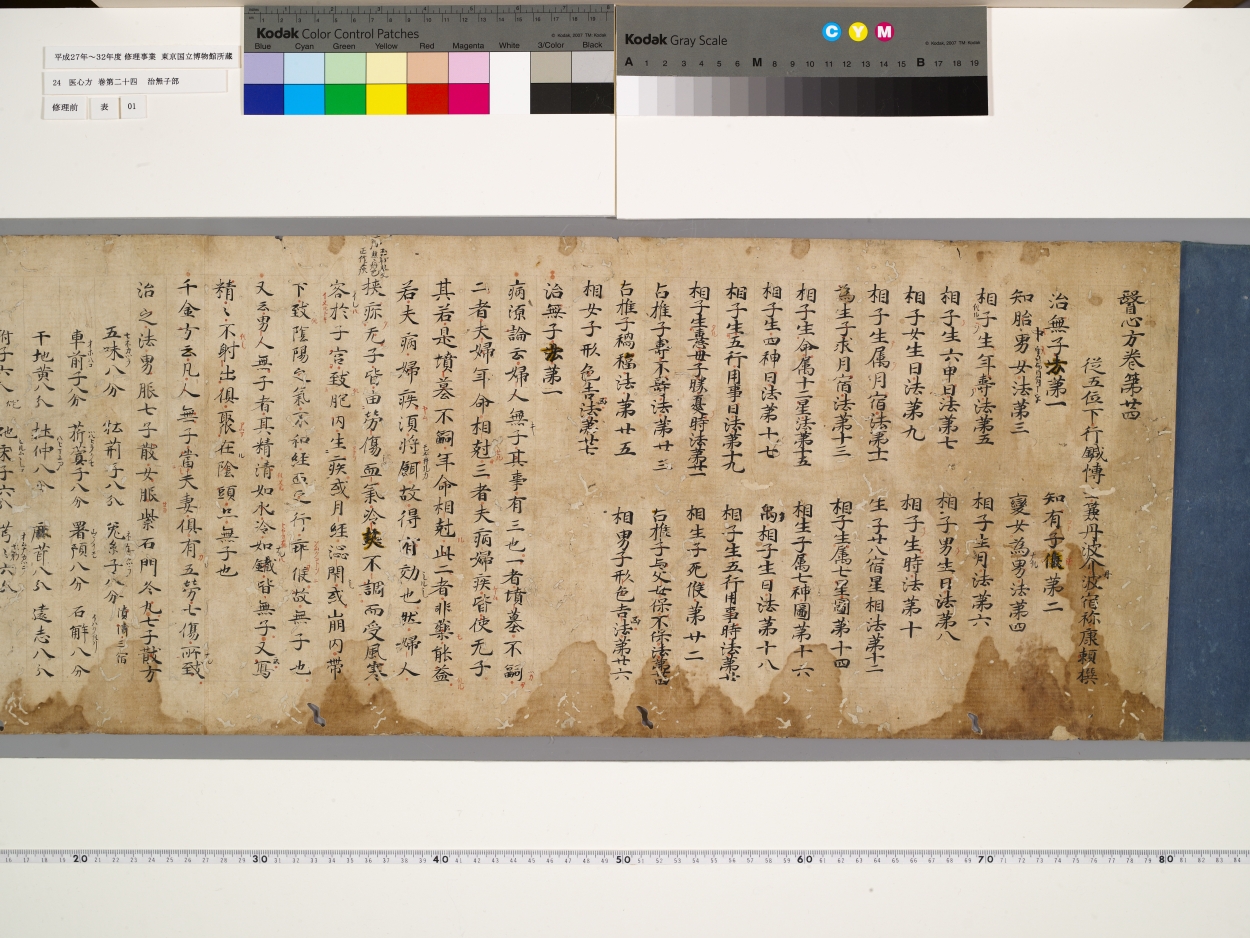 平成27年～32年度 修理事業 東京国立博物館所蔵
24 医心方 巻第二十四 治無子部
修理前 表 01
Kodak Color Control Patches
© Kodak, 2007 TM: Kodak
Blue Cyan Green Yellow Red Magenta White 3/Color Black
Kodak Gray Scale
C Y M
© Kodak, 2007 TM: Kodak
A 1 2 3 4 5 6 M 8 9 10 11 12 13 14 15 B 17 18 19
醫心方卷第廿四
從五位下行鍼博士兼丹波介丹波宿祢康頼撰
治無子法第一 知有子候第二
知胎中男女法第三 變女為男法第四
相子生年壽法第五 相子生月法第六
相子生六甲日法第七 相子男生日法第八
相子女生日法第九 相子生時法第十
相子生属月宿法第十一 生子廿八宿星相法第十二
為生子求月宿法第十三 相子生属七星圖第十四
相子生命属十二星法第十五 相生子属七神圖第十六
相子生四神日法第十七 禹相子生日法第十八
相子生五行用事日法第十九 相子生五行用事時法第廿
相子生意母子勝憂時法第廿一 相生子死候第廿二
占推子壽不壽法第廿三 占推子与父母保不保法第廿四
占推子禍福法第廿五 相男子形色吉凶法第廿六
相女子形色吉凶法第廿七
治無子法第一
病源論云婦人無子其事有三也一者墳墓不嗣
二者夫婦年命相尅三者夫病婦疾皆使无子
其若是墳墓不嗣年命相尅此二者非藥能益
若夫病婦疾須將餌故得有効也然婦人
挾疹无子皆由勞傷血氣冷熱不調而受風寒
客於子宮致胞内生疾或月経澁閇或崩内帶
下致陰陽之氣不和経血之行乖候故無子也
又云男人無子者其精清如水冷如鐵皆無子又寫
精〻不射出俱聚在陰頭亦無子也
千金方云凡人無子當夫妻俱有五勞七傷所致
治之法男服七子散女服紫石門冬丸七子散方
五味八分 牡荊子八分 菟糸子八分
車前子八分 菥蓂子八分 署預八分 石斛八分
干地黄八分 杜仲八分 鹿茸八分 遠志八分
附子六分 蛇床子六分
20 30 40 50 60 70 80